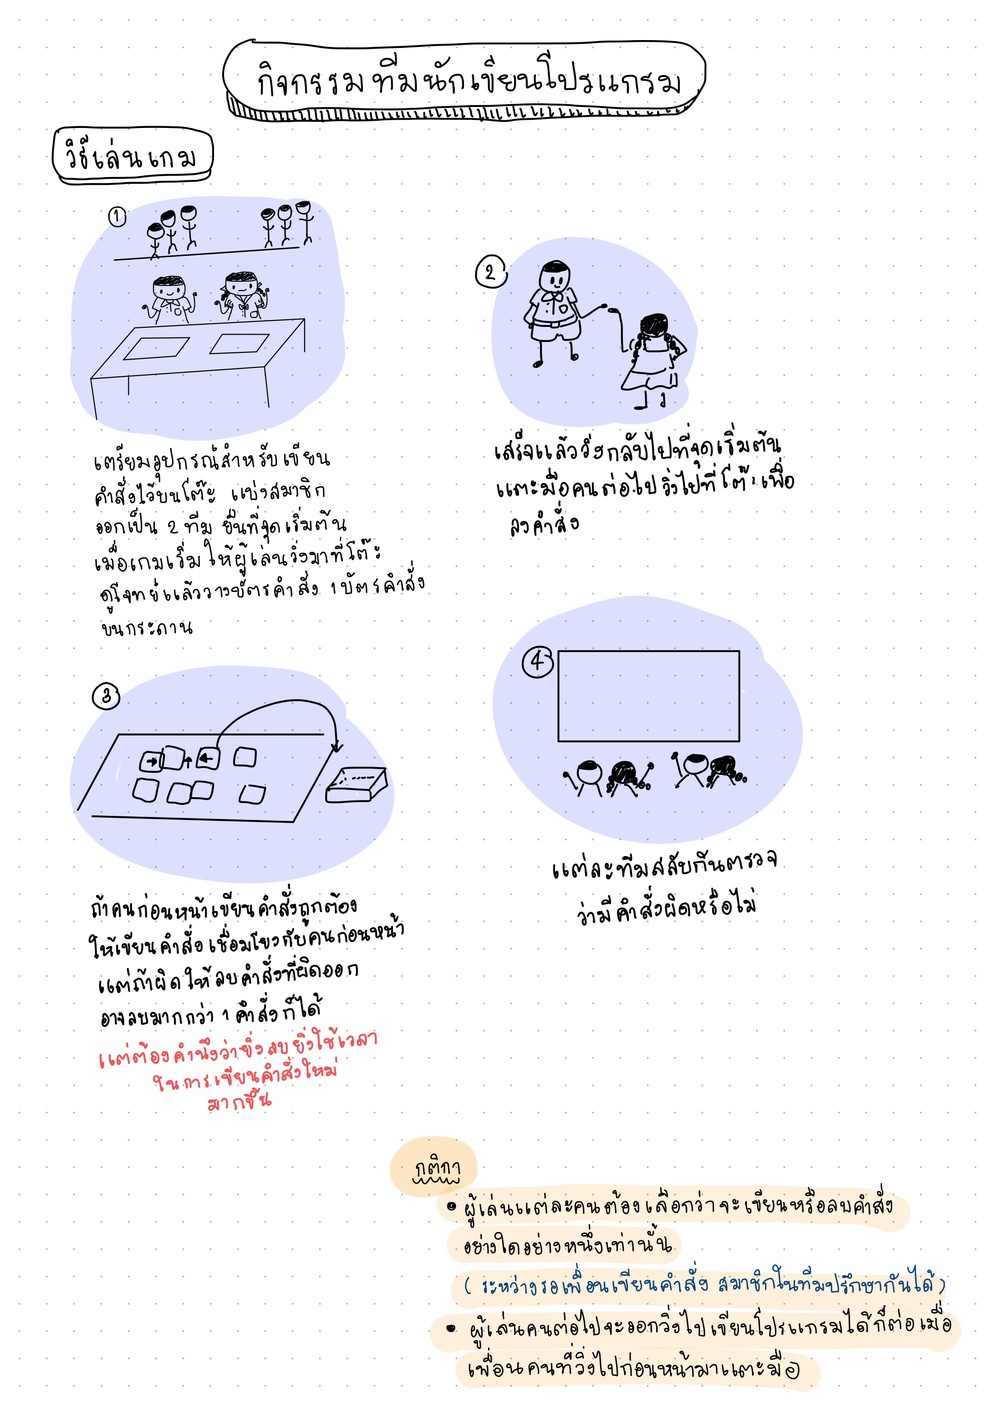 กิจกรรม ทีมนักเขียนโปรแกรม
วิธีเล่นเกม
1
เตรียมอุปกรณ์สำหรับเขียน
คำสั่งไว้บนโต๊ะ แบ่งสมาชิก
ออกเป็น 2 ทีม ยืนที่จุดเริ่มต้น
เมื่อเกมเริ่ม ให้ผู้เล่นวิ่งมาที่โต๊ะ
ดูโจทย์แล้ววางบัตรคำสั่ง 1 บัตรคำสั่ง
บนกระดาน
2
เสร็จแล้ววิ่งกลับไปที่จุดเริ่มต้น
แตะมือคนต่อไป วิ่งไปที่โต๊ะเพื่อ
ลงคำสั่ง
3
ถ้าคนก่อนหน้าเขียนคำสั่งถูกต้อง
ให้เขียนคำสั่งเชื่อมโยงกับคนก่อนหน้า
แต่ถ้าผิด ให้ลบคำสั่งที่ผิดออก
อาจลบมากกว่า 1 คำสั่งก็ได้
แต่ต้องคำนึงว่ายิ่งลบ ยิ่งใช้เวลา
ในการเขียนคำสั่งใหม่
มากขึ้น
4
แต่ละทีมสลับกันตรวจ
ว่ามีคำสั่งผิดหรือไม่
กติกา
• ผู้เล่นแต่ละคนต้องเลือกว่าจะเขียนหรือลบคำสั่ง
อย่างใดอย่างหนึ่งเท่านั้น
( ระหว่างรอเพื่อนเขียนคำสั่ง สมาชิกในทีมปรึกษากันได้ )
• ผู้เล่นคนต่อไปจะออกวิ่งไปเขียนโปรแกรมได้ก็ต่อเมื่อ
เพื่อนคนที่วิ่งไปก่อนหน้ามาแตะมือ